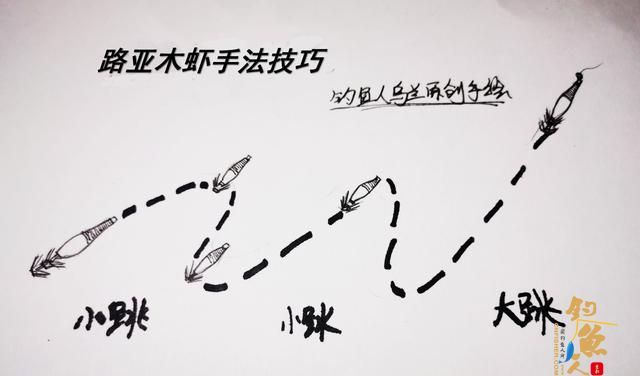 路亚木虾手法技巧
钓鱼人乌兰原创手绘
小跳
小跳
大跳
钓鱼人